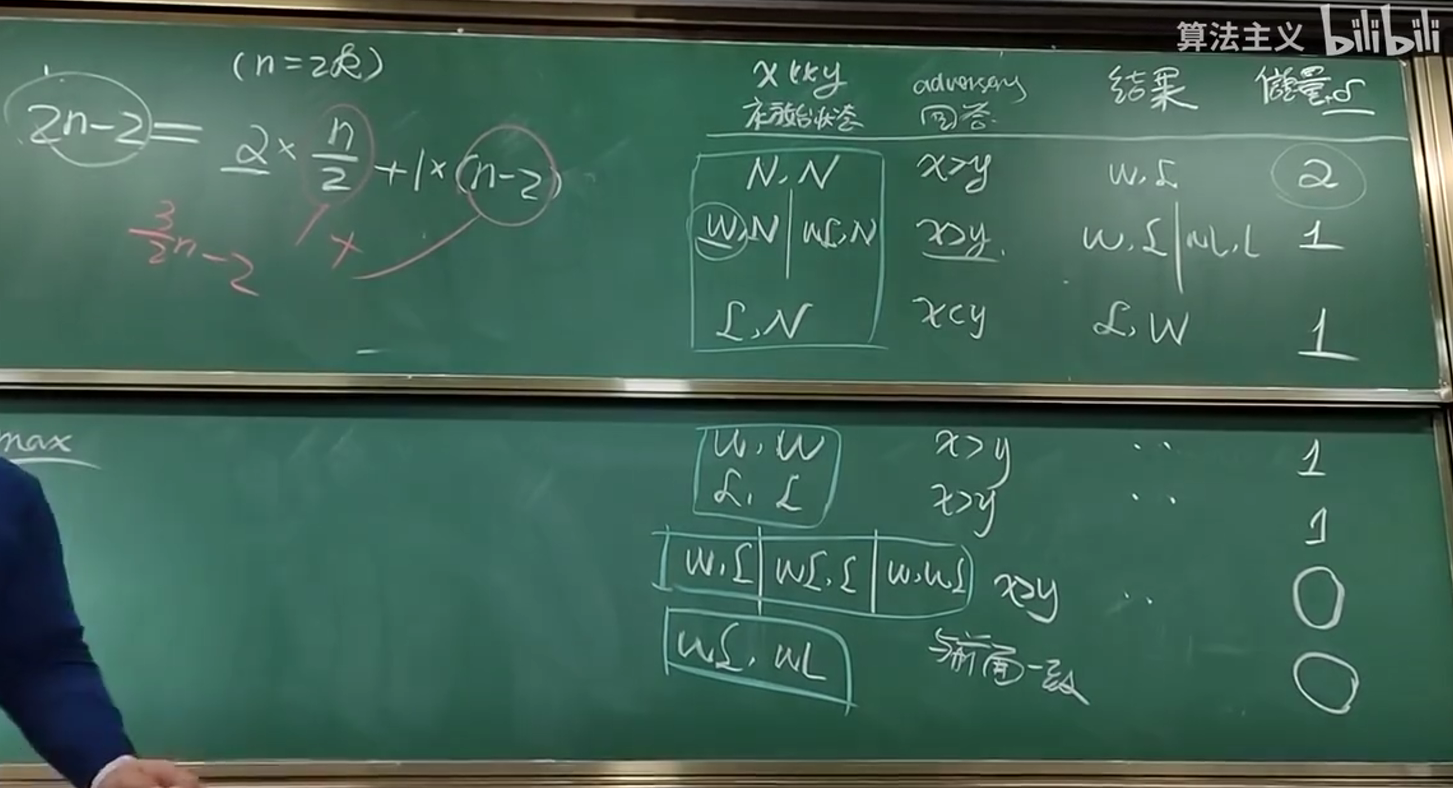 算法主义 bilibili
(n=2k)
2n-2 = 2 × n/2 + 1 × (n-2)
3/2 n - 2
x 与 y adversary 结果 信息量δ
擂台状态 回答
N,N x>y W,L 2
W,N | WL,N x>y W,L | WL,L 1
L,N x<y L,W 1
max
W,W x>y ·· 1
L,L x>y ·· 1
W,L | WL,L | W,WL x>y ·· 0
WL,WL 与前面一致 0